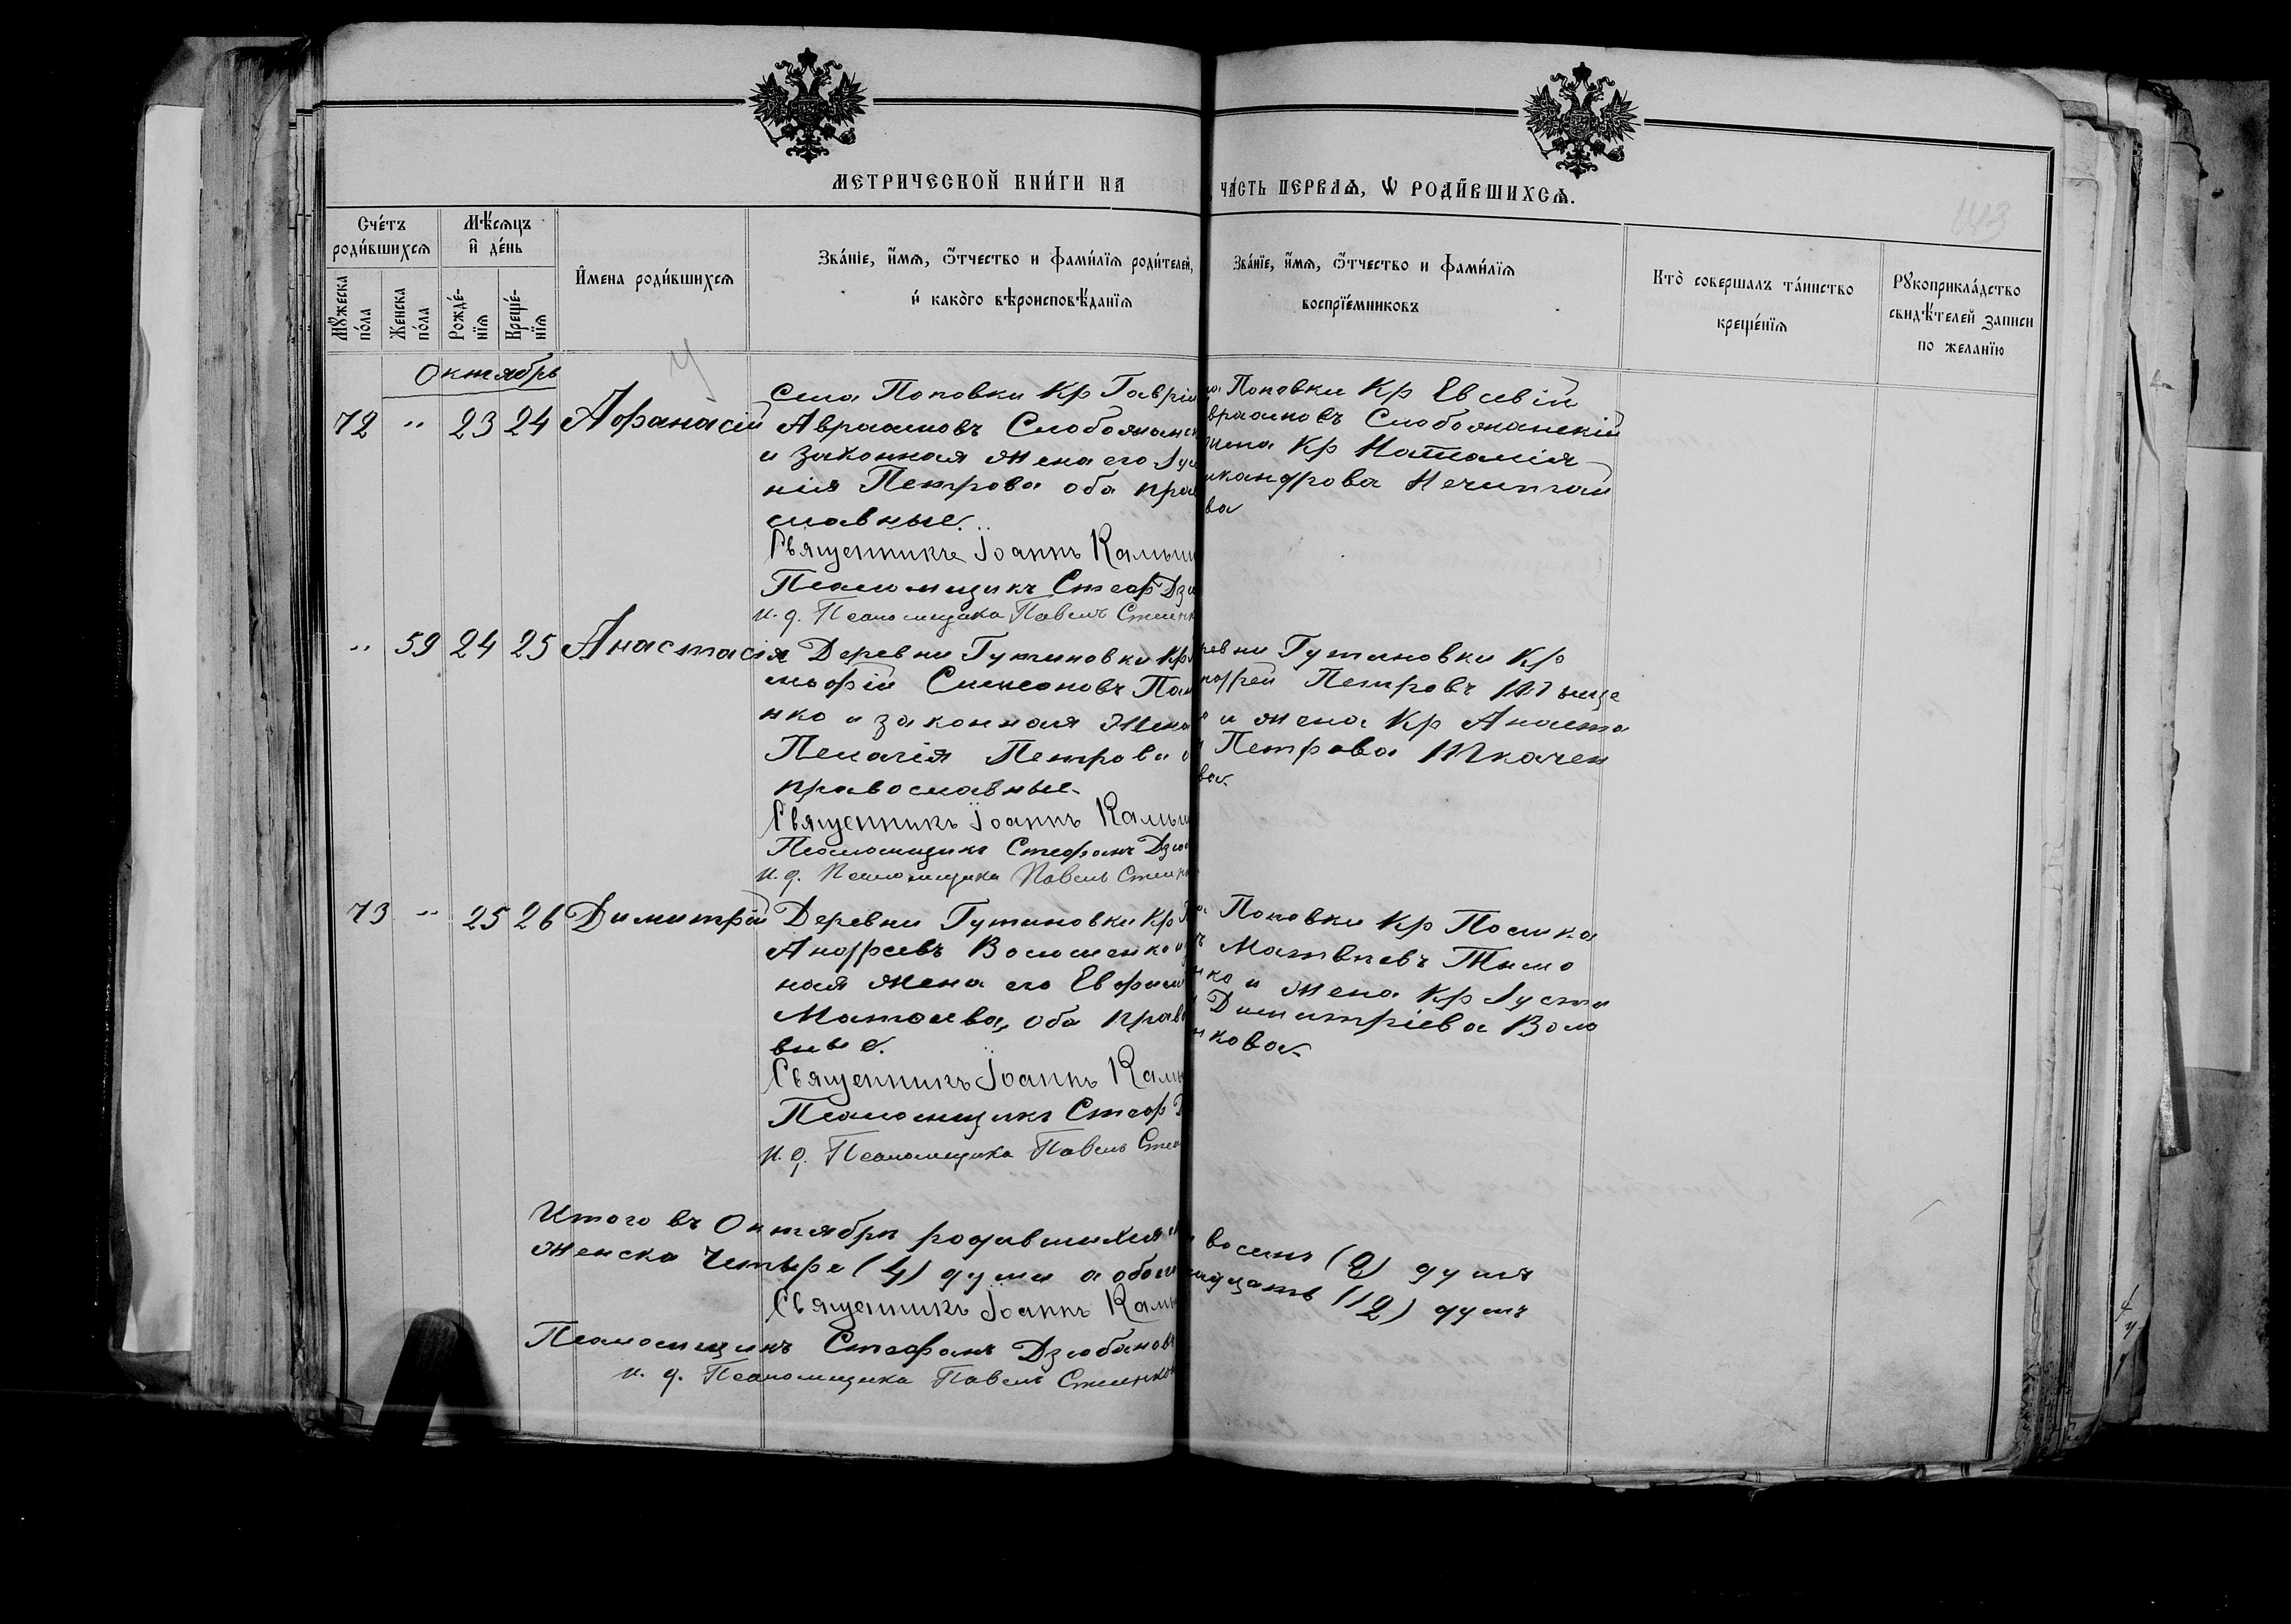 МЕТРИЧЕСКОЙ КНИ́ГИ НА
ЧА́СТЬ ПЕРВАѦ, Ѡ РОДИ́ВШИХСѦ.
143
Сче́тъ роди́вшихсѧ
Мѣ́сѧцъ и҆ де́нь
Мꙋ́жеска по́ла
Же́нска по́ла
Рожде́нїѧ
Креще́нїѧ
И҆мена роди́вшихсѧ
Зва́нїе, и҆́мѧ, ѻ҆́тчество и фами́лїѧ роди́телей,
и҆ како́го вѣроисповѣ́данїѧ
Зва́нїе, и҆́мѧ, ѻ҆́тчество и фами́лїѧ
воспрїе́мниковъ
Кто̀ соверша́лъ та́инство
креще́нїѧ
Рꙋкоприкла́дство
свидѣ́телей записи
по жела́нїю
Октябрь
72 " 23 24 Афанасій
Села Поповки Кр Гаврі
Авраамовъ Слобожанск
и законная жена его
нія Петрова оба пра
славные.
Священникъ Іоаннъ
Псаломщикъ Стеф
и. д. Псаломщика Павелъ
Поповки Кр Евсевій
враамовъ Слобожанскій
жена Кр Наталія
икандрова
ва
" 59 24 25 Анастасія
Деревни Гутыновки Кр
мофій Симеоновъ
нко и законная жена
Пелагія Петрова
православные.
Священникъ Іоаннъ
Псаломщикъ Стефанъ
и. д. Псаломщика Павелъ
ревни Гутыновки Кр
ндрей Петровъ
и жена Кр Анаста
Петрова Ткачен
ва.
73 " 25 26 Димитрій
Деревни Гутыновки Кр
Андреевъ Волошенко и
ная жена его Евфим
Матѳеева, оба право
вные.
Священникъ Іоаннъ
Псаломщикъ Стеф
и. д. Псаломщика Павелъ
Поповки Кр Полика
Матвѣевъ Тимо
нко и жена Кр Густи
Димитріева Воло
нкова.
Итого въ Октябрѣ родившихся
восемь (8) душъ
женска четыре (4) души а обоего
надцать (12) душъ
Священникъ Іоаннъ
Псаломщикъ Стефанъ Дзюбановъ
и. д. Псаломщика Павелъ